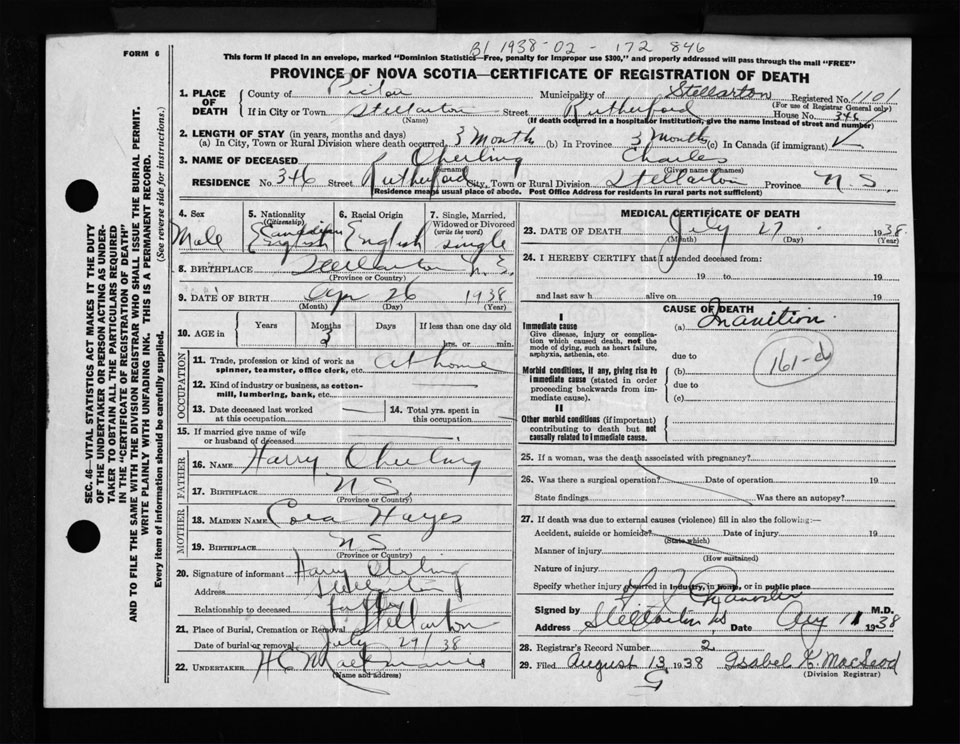 BI 1938-02-172 846
FORM 6
This form if placed in an envelope, marked "Dominion Statistics—Free, penalty for improper use $300," and properly addressed will pass through the mail "FREE"
PROVINCE OF NOVA SCOTIA—CERTIFICATE OF REGISTRATION OF DEATH
SEC. 46—VITAL STATISTICS ACT MAKES IT THE DUTY
OF THE UNDERTAKER OR PERSON ACTING AS UNDER-
TAKER TO OBTAIN ALL THE PARTICULARS REQUIRED
IN THE "CERTIFICATE OF REGISTRATION OF DEATH"
AND TO FILE THE SAME WITH THE DIVISION REGISTRAR WHO SHALL ISSUE THE BURIAL PERMIT.
WRITE PLAINLY WITH UNFADING INK. THIS IS A PERMANENT RECORD.
Every item of information should be carefully supplied. (See reverse side for instructions.)
1. PLACE OF DEATH
County of Pictou Municipality of Stellarton Registered No. 1101
(For use of Registrar General only)
If in City or Town Stellarton Street Rutherford House No. 346
(Name) (If death occurred in a hospital or institution, give the name instead of street and number)
2. LENGTH OF STAY (in years, months and days)
(a) In City, Town or Rural Division where death occurred 3 Month (b) In Province 3 Month (c) In Canada (if immigrant)
3. NAME OF DECEASED Charles
(Surname) (Given name or names)
RESIDENCE No. 346 Street Rutherford City, Town or Rural Division Stellarton Province N S.
(Residence means usual place of abode. Post Office Address for residents in rural parts not sufficient)
4. Sex Male
5. Nationality (Citizenship) Canadian English
6. Racial Origin English
7. Single, Married, Widowed or Divorced (write the word) single
8. BIRTHPLACE Stellarton N.S.
(Province or Country)
9. DATE OF BIRTH Apr 26 1938
(Month) (Day) (Year)
10. AGE in Years Months 3 Days If less than one day old
hrs. or min.
OCCUPATION
11. Trade, profession or kind of work as spinner, teamster, office clerk, etc. at home
12. Kind of industry or business, as cotton-mill, lumbering, bank, etc. —
13. Date deceased last worked at this occupation —
14. Total yrs. spent in this occupation —
15. If married give name of wife or husband of deceased
FATHER
16. NAME Harry
17. BIRTHPLACE N S.
(Province or Country)
MOTHER
18. MAIDEN NAME Cora Hayes
19. BIRTHPLACE N S.
(Province or Country)
20. Signature of informant Harry
Address Stellarton
Relationship to deceased father
21. Place of Burial, Cremation or Removal Stellarton
Date of burial or removal July 29/38
22. UNDERTAKER
(Name and address)
MEDICAL CERTIFICATE OF DEATH
23. DATE OF DEATH July 27 1938
(Month) (Day) (Year)
24. I HEREBY CERTIFY that I attended deceased from:
19 to 19
and last saw h alive on 19
CAUSE OF DEATH
I
Immediate cause
Give disease, injury or complication which caused death, not the mode of dying, such as heart failure, asphyxia, asthenia, etc.
(a) Inanition
due to
Morbid conditions, if any, giving rise to immediate cause (stated in order proceeding backwards from immediate cause).
(b)
due to
(c)
161-d
II
Other morbid conditions (if important) contributing to death but not causally related to immediate cause.
25. If a woman, was the death associated with pregnancy?
26. Was there a surgical operation? Date of operation 19
State findings Was there an autopsy?
27. If death was due to external causes (violence) fill in also the following:—
Accident, suicide or homicide? Date of injury 19
(State which)
Manner of injury
(How sustained)
Nature of injury
Specify whether injury occurred in industry, in home, or in public place
Signed by M.D.
Address Stellarton NS Date Aug 11 1938
28. Registrar's Record Number 2
29. Filed August 13 1938 Isabel K. MacLeod
(Division Registrar)